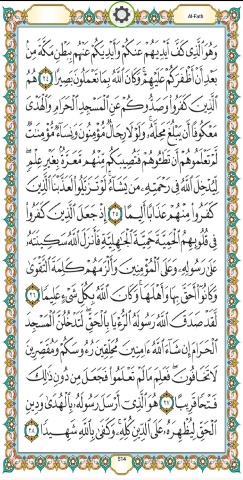 Al-Fath
وَهُوَ ٱلَّذِي كَفَّ أَيۡدِيَهُمۡ عَنكُمۡ وَأَيۡدِيَكُمۡ عَنۡهُم بِبَطۡنِ مَكَّةَ مِنۢ
بَعۡدِ أَنۡ أَظۡفَرَكُمۡ عَلَيۡهِمۡۚ وَكَانَ ٱللَّهُ بِمَا تَعۡمَلُونَ بَصِيرًا ٢٤ هُمُ
ٱلَّذِينَ كَفَرُواْ وَصَدُّوكُمۡ عَنِ ٱلۡمَسۡجِدِ ٱلۡحَرَامِ وَٱلۡهَدۡيَ
مَعۡكُوفًا أَن يَبۡلُغَ مَحِلَّهُۥۚ وَلَوۡلَا رِجَالٞ مُّؤۡمِنُونَ وَنِسَآءٞ مُّؤۡمِنَٰتٞ
لَّمۡ تَعۡلَمُوهُمۡ أَن تَطَـُٔوهُمۡ فَتُصِيبَكُم مِّنۡهُم مَّعَرَّةُۢ بِغَيۡرِ عِلۡمٖۖ
لِّيُدۡخِلَ ٱللَّهُ فِي رَحۡمَتِهِۦ مَن يَشَآءُۚ لَوۡ تَزَيَّلُواْ لَعَذَّبۡنَا ٱلَّذِينَ
كَفَرُواْ مِنۡهُمۡ عَذَابًا أَلِيمًا ٢٥ إِذۡ جَعَلَ ٱلَّذِينَ كَفَرُواْ
فِي قُلُوبِهِمُ ٱلۡحَمِيَّةَ حَمِيَّةَ ٱلۡجَٰهِلِيَّةِ فَأَنزَلَ ٱللَّهُ سَكِينَتَهُۥ
عَلَىٰ رَسُولِهِۦ وَعَلَى ٱلۡمُؤۡمِنِينَ وَأَلۡزَمَهُمۡ كَلِمَةَ ٱلتَّقۡوَىٰ
وَكَانُوٓاْ أَحَقَّ بِهَا وَأَهۡلَهَاۚ وَكَانَ ٱللَّهُ بِكُلِّ شَيۡءٍ عَلِيمٗا ٢٦
لَّقَدۡ صَدَقَ ٱللَّهُ رَسُولَهُ ٱلرُّءۡيَا بِٱلۡحَقِّۖ لَتَدۡخُلُنَّ ٱلۡمَسۡجِدَ
ٱلۡحَرَامَ إِن شَآءَ ٱللَّهُ ءَامِنِينَ مُحَلِّقِينَ رُءُوسَكُمۡ وَمُقَصِّرِينَ
لَا تَخَافُونَۖ فَعَلِمَ مَا لَمۡ تَعۡلَمُواْ فَجَعَلَ مِن دُونِ ذَٰلِكَ
فَتۡحٗا قَرِيبًا ٢٧ هُوَ ٱلَّذِيٓ أَرۡسَلَ رَسُولَهُۥ بِٱلۡهُدَىٰ وَدِينِ
ٱلۡحَقِّ لِيُظۡهِرَهُۥ عَلَى ٱلدِّينِ كُلِّهِۦۚ وَكَفَىٰ بِٱللَّهِ شَهِيدٗا ٢٨
514